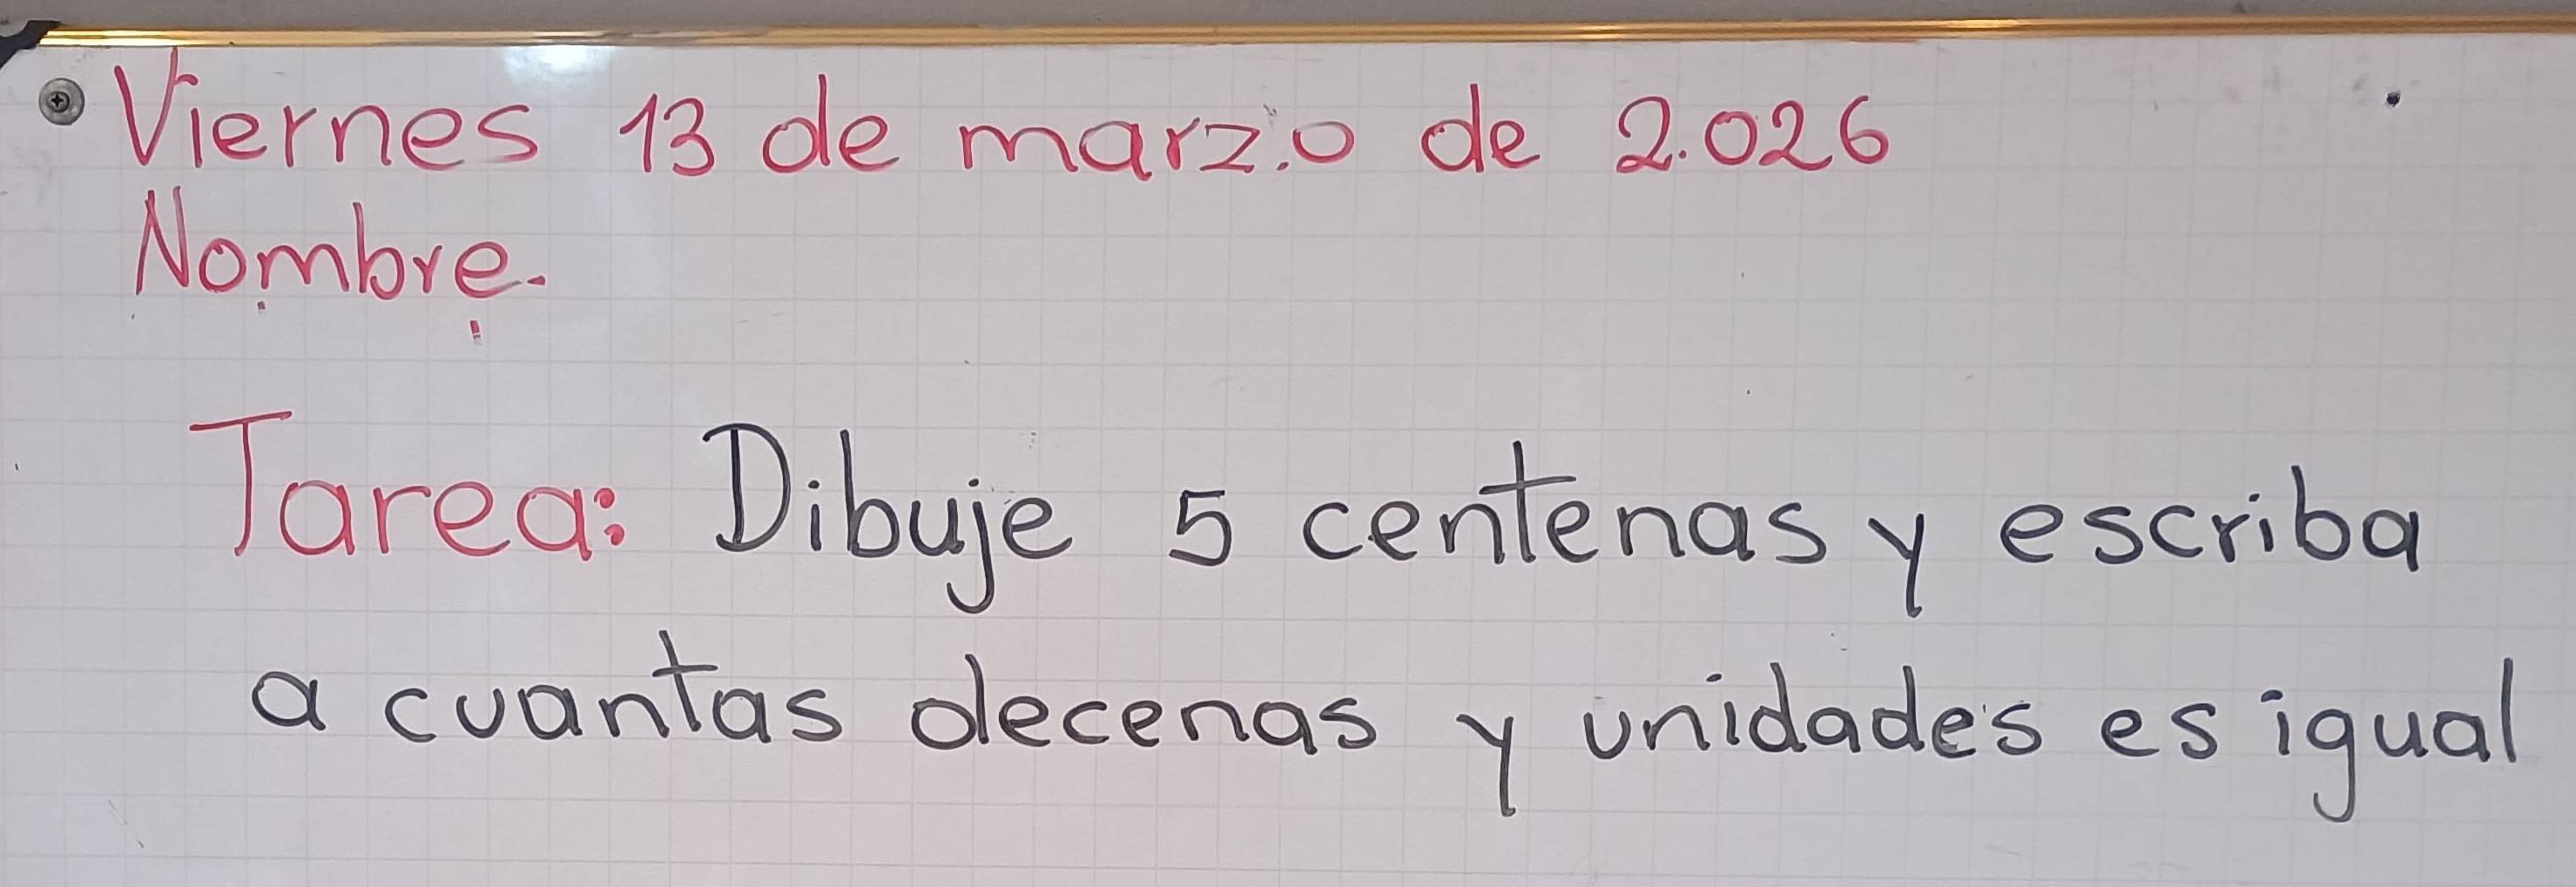 Viernes 13 de marzo de 2.026
Nombre.
Tarea: Dibuje 5 centenas y escriba
a cuantas decenas y unidades es igual